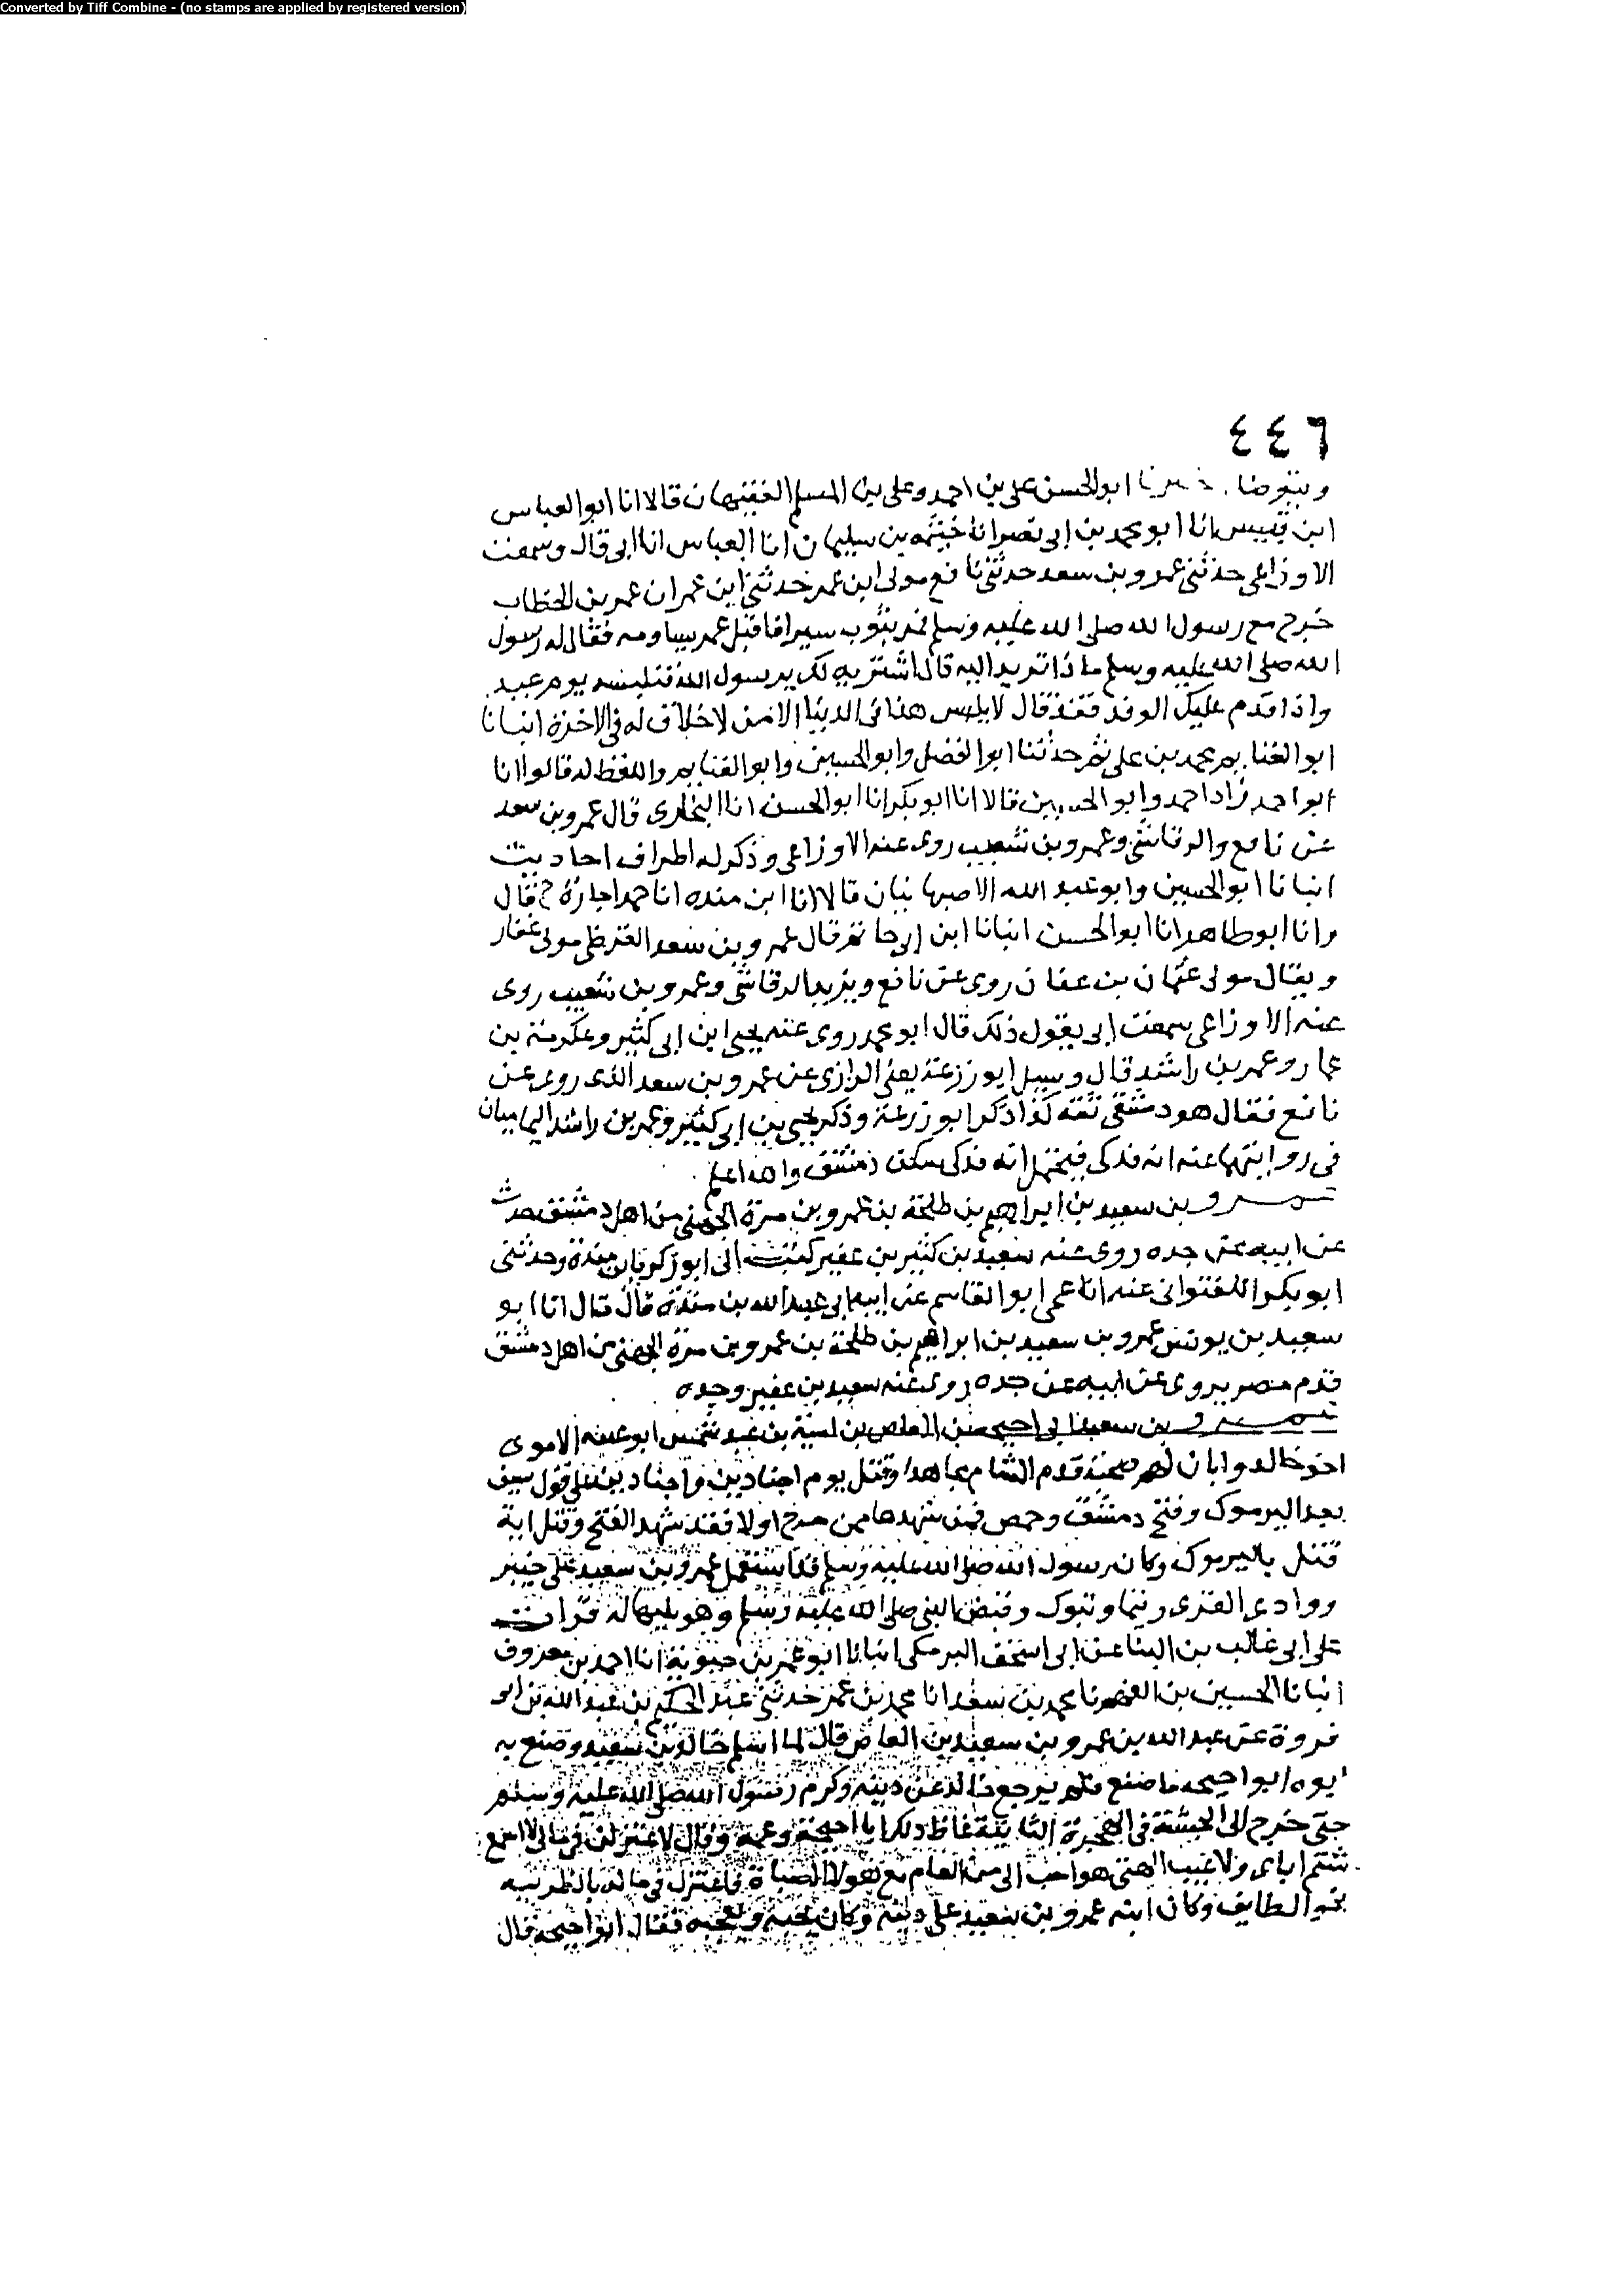 Converted by Tiff Combine - (no stamps are applied by registered version)
٤٤٦
ويتوضا. خبرنا ابوالحسن على بن احمد وعلى بن المسلم الفقيهان قالا انا ابوالعباس
ابن قبيس انا ابو محمد بن ابى نصر انا خيثمه بن سليمان انا العباس انا ابى قال وسمعت
الاوزاعى حدثنى عمرو بن سعد حدثنى نافع مولى ابن عمر حدثنى ابن عمر ان عمر بن الخطاب
خرج مع رسول الله صلى الله عليه وسلم فمر بثوب سيرا فاقبل عمر يساومه فقال له رسول
الله صلى الله عليه وسلم ماذا تريد اليه قال اشتريه لك يرسول الله فتلبسه يوم عيد
واذا قدم عليك الوفد فقال لا يلبس هذا فى الدنيا الا من لا خلاق له فى الاخرة انبانا
ابوالغنايم محمد بن على ثم حدثنا ابوالفضل وابوالحسين وابوالغنايم واللفظ له قالوا انا
ابواحمد زاد احمد وابوالحسين قالا انا ابوبكر انا ابوالحسن انا البخارى قال عمرو بن سعد
عن نافع والرقاشى وعمرو بن شعيب روى عنه الاوزاعى وذكر له اطراف احاديث
انبانا ابوالحسين وابوعبد الله الاصبهانيان قالا انا ابن منده انا حمد اجازة ح قال
وانا ابوطاهر انا ابوالحسن انبانا ابن ابى حاتم قال عمرو بن سعد القرظى مولى غفار
ويقال مولى عثمان بن عفان روى عن نافع ويزيد الرقاشى وعمرو بن شعيب روى
عنه الاوزاعى سمعت ابى يقول ذلك قال ابو محمد روى عنه يحيى ابن ابى كثير وعكرمة بن
عمار وعمر بن راشد قال وسيل ابوزرعة يعنى الرازى عن عمرو بن سعد الذى روى عن
نافع فقال هو دمشقى ثقة كذا ذكر ابوزرعة وذكر يحيى بن ابى كثير وعمر بن راشد اليماميان
فى روايتهما عنه انه فدكى فيحتمل انه فدكى سكن دمشق والله اعلم
عمرو بن سعيد بن ابراهيم بن طلحة بن عمرو بن مرة الجهنى من اهل دمشق حدث
عن ابيه عن جده روى عنه سعيد بن كثير بن عفير كتب الى ابوزكريا بن مندة وحدثنى
ابوبكر اللفتوانى عنه انا عمى ابوالقاسم عن ابيه ابى عبد الله بن مندة قال قال انا ابو
سعيد بن يونس عمرو بن سعيد بن ابراهيم بن طلحة بن عمرو بن مرة الجهنى من اهل دمشق
قدم مصر يروى عن ابيه عن جده روى عنه سعيد بن عفير وحده
عمرو بن سعيد ابى احيحة بن العاص بن امية بن عبد شمس ابو عتبه الاموى
اخو خالد وابان لهم صحبة قدم الشام مجاهدا وقتل يوم اجنادين واجنادين على قول سيف
بعد اليرموك وفتح دمشق وحمص فمن شهدها ممن اولا فقد شهد الفتح وقيل انه
قتل باليرموك وكان رسول الله صلى الله عليه وسلم قد استعمل عمرو بن سعيد على خيبر
ووادى القرى وتيما وتبوك وقبض النبى صلى الله عليه وسلم وهو يليها له قرات
على ابى غالب بن البنا عن ابى اسحق البرمكى انبانا ابو عمر بن حيويه انا احمد بن معروف
انبانا الحسين بن الفهم نا محمد بن سعد انا محمد بن عمر حدثنى عبد الحكيم بن عبد الله بن ابو
فروة عن عبد الله بن عمرو بن سعيد بن العاص قال لما اسلم خالد بن سعيد وصنع به
ابوه ابو احيحه ما صنع فلم يرجع خالد عن دينه وكرم رسول الله صلى الله عليه وسلم
حتى خرج الى الحبشة فى الهجرة الثانية غاظ ذلك ابا احيحة وغمه وقال لاعتزلن فى مالى لا اسمع
شتم اباى ولا عيب الهتى هو احب الى من المقام مع هولا الصباة فاعتزل فى ماله بالظريبه
نحو الطايف وكان ابنه عمرو بن سعيد على دينه وكان يحبه ويعجبه فقال ابو احيحه قال